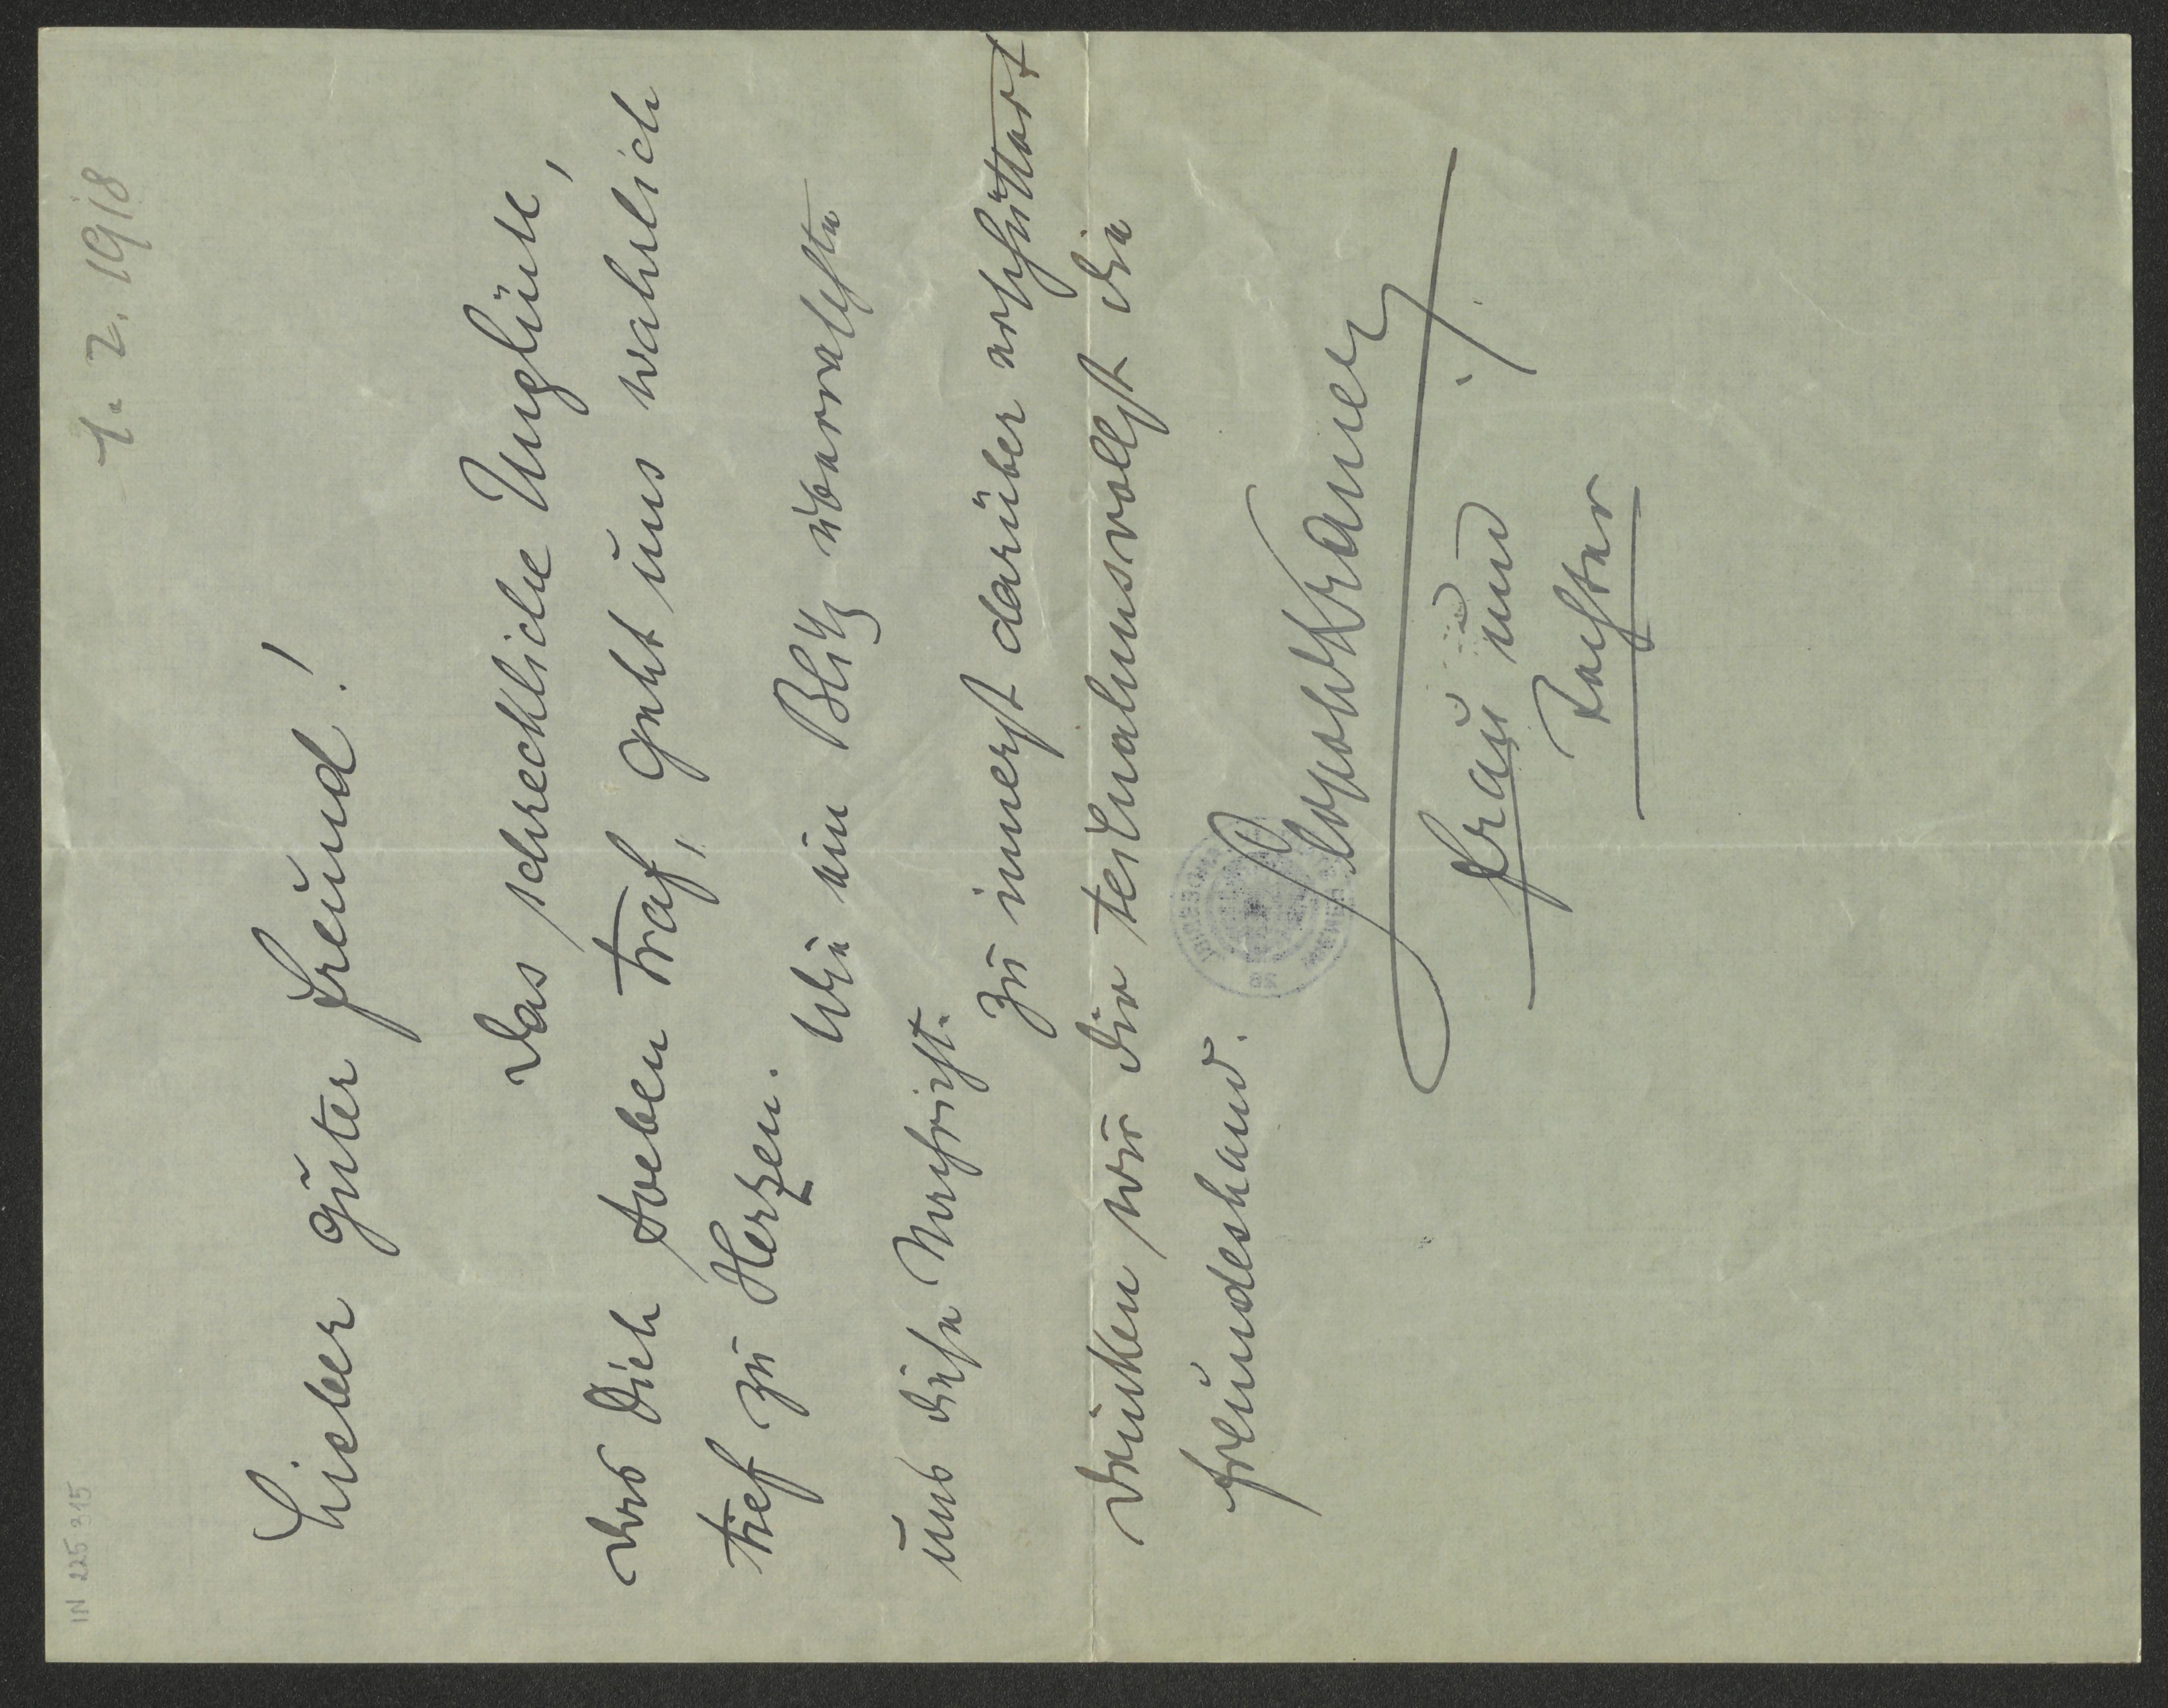 IN 225 315
1. 2. 1918
Lieber guter Freund!
Das schreckliche Unglück,
das Dich soeben traf, geht uns wahrlich
tief zu Herzen. Wie ein Blitz überraschte
uns diese Nachricht.
Zu innerst darüber erschüttert
drücken wir Dir teilnahmsvollst die
Freundeshand.
Frau und
Tochter